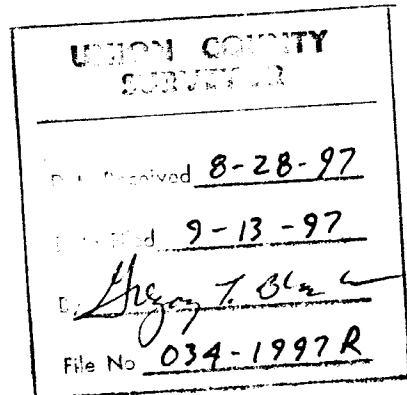 UNION COUNTY
SURVEYOR
Date Received 8-28-97
Date Filed 9-13-97
By Gregory T.
File No 034-1997 R